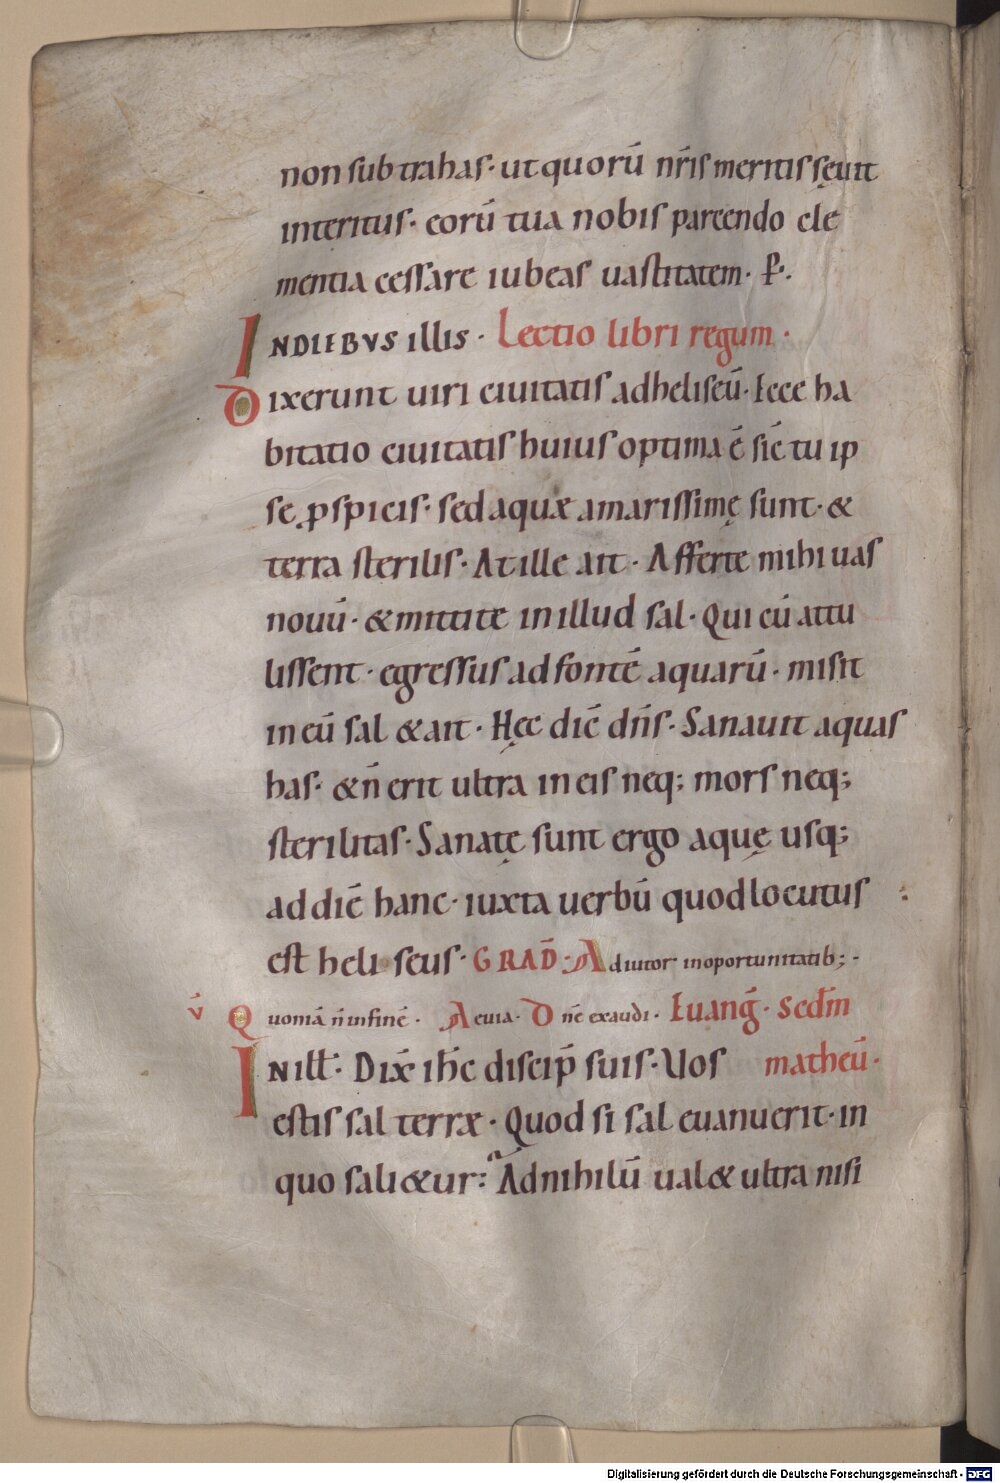 non subtrahas· ut quorū nr̄is meritis sęuit
interitus· eorū tua nobis parcendo cle
mentia cessare iubeas uastitatem· P·.
INDIEBVS illis · Lectio libri regum ·
Dixerunt uiri ciuitatis ad heliseū· Ecce ha
bitatio ciuitatis huius optima ē sic̄ tu ip
se ꝑspicis· sed aquæ amarissimę sunt· &
terra sterilis· At ille ait · Afferte mihi uas
nouū· & mittite in illud sal· Qui cū attu
lissent· egressus ad fontē aquarū· misit
in eū sal & ait · Hęc dic̄ dn̄s· Sanauit aquas
has· & n̄ erit ultra in eis neq; mors neq;
sterilitas· Sanatę sunt ergo aquę usq;
ad diē hanc· iuxta uerbū quod locutus
est heliseus· GRAD̄· Adiutor inoportunitatib; ·
v̄ Quoniā n̄ infinē · Aeuia· Dn̄e exaudi· Euanḡ· sed̄m
IN ill̄· Dix̄ ih̄c discip̄ suis· Uos matheū·
estis sal terræ· Quod si sal euanuerit· in
quo sali&ur: Ad nihilū ual& ultra nisi
Digitalisierung gefördert durch die Deutsche Forschungsgemeinschaft - DFG